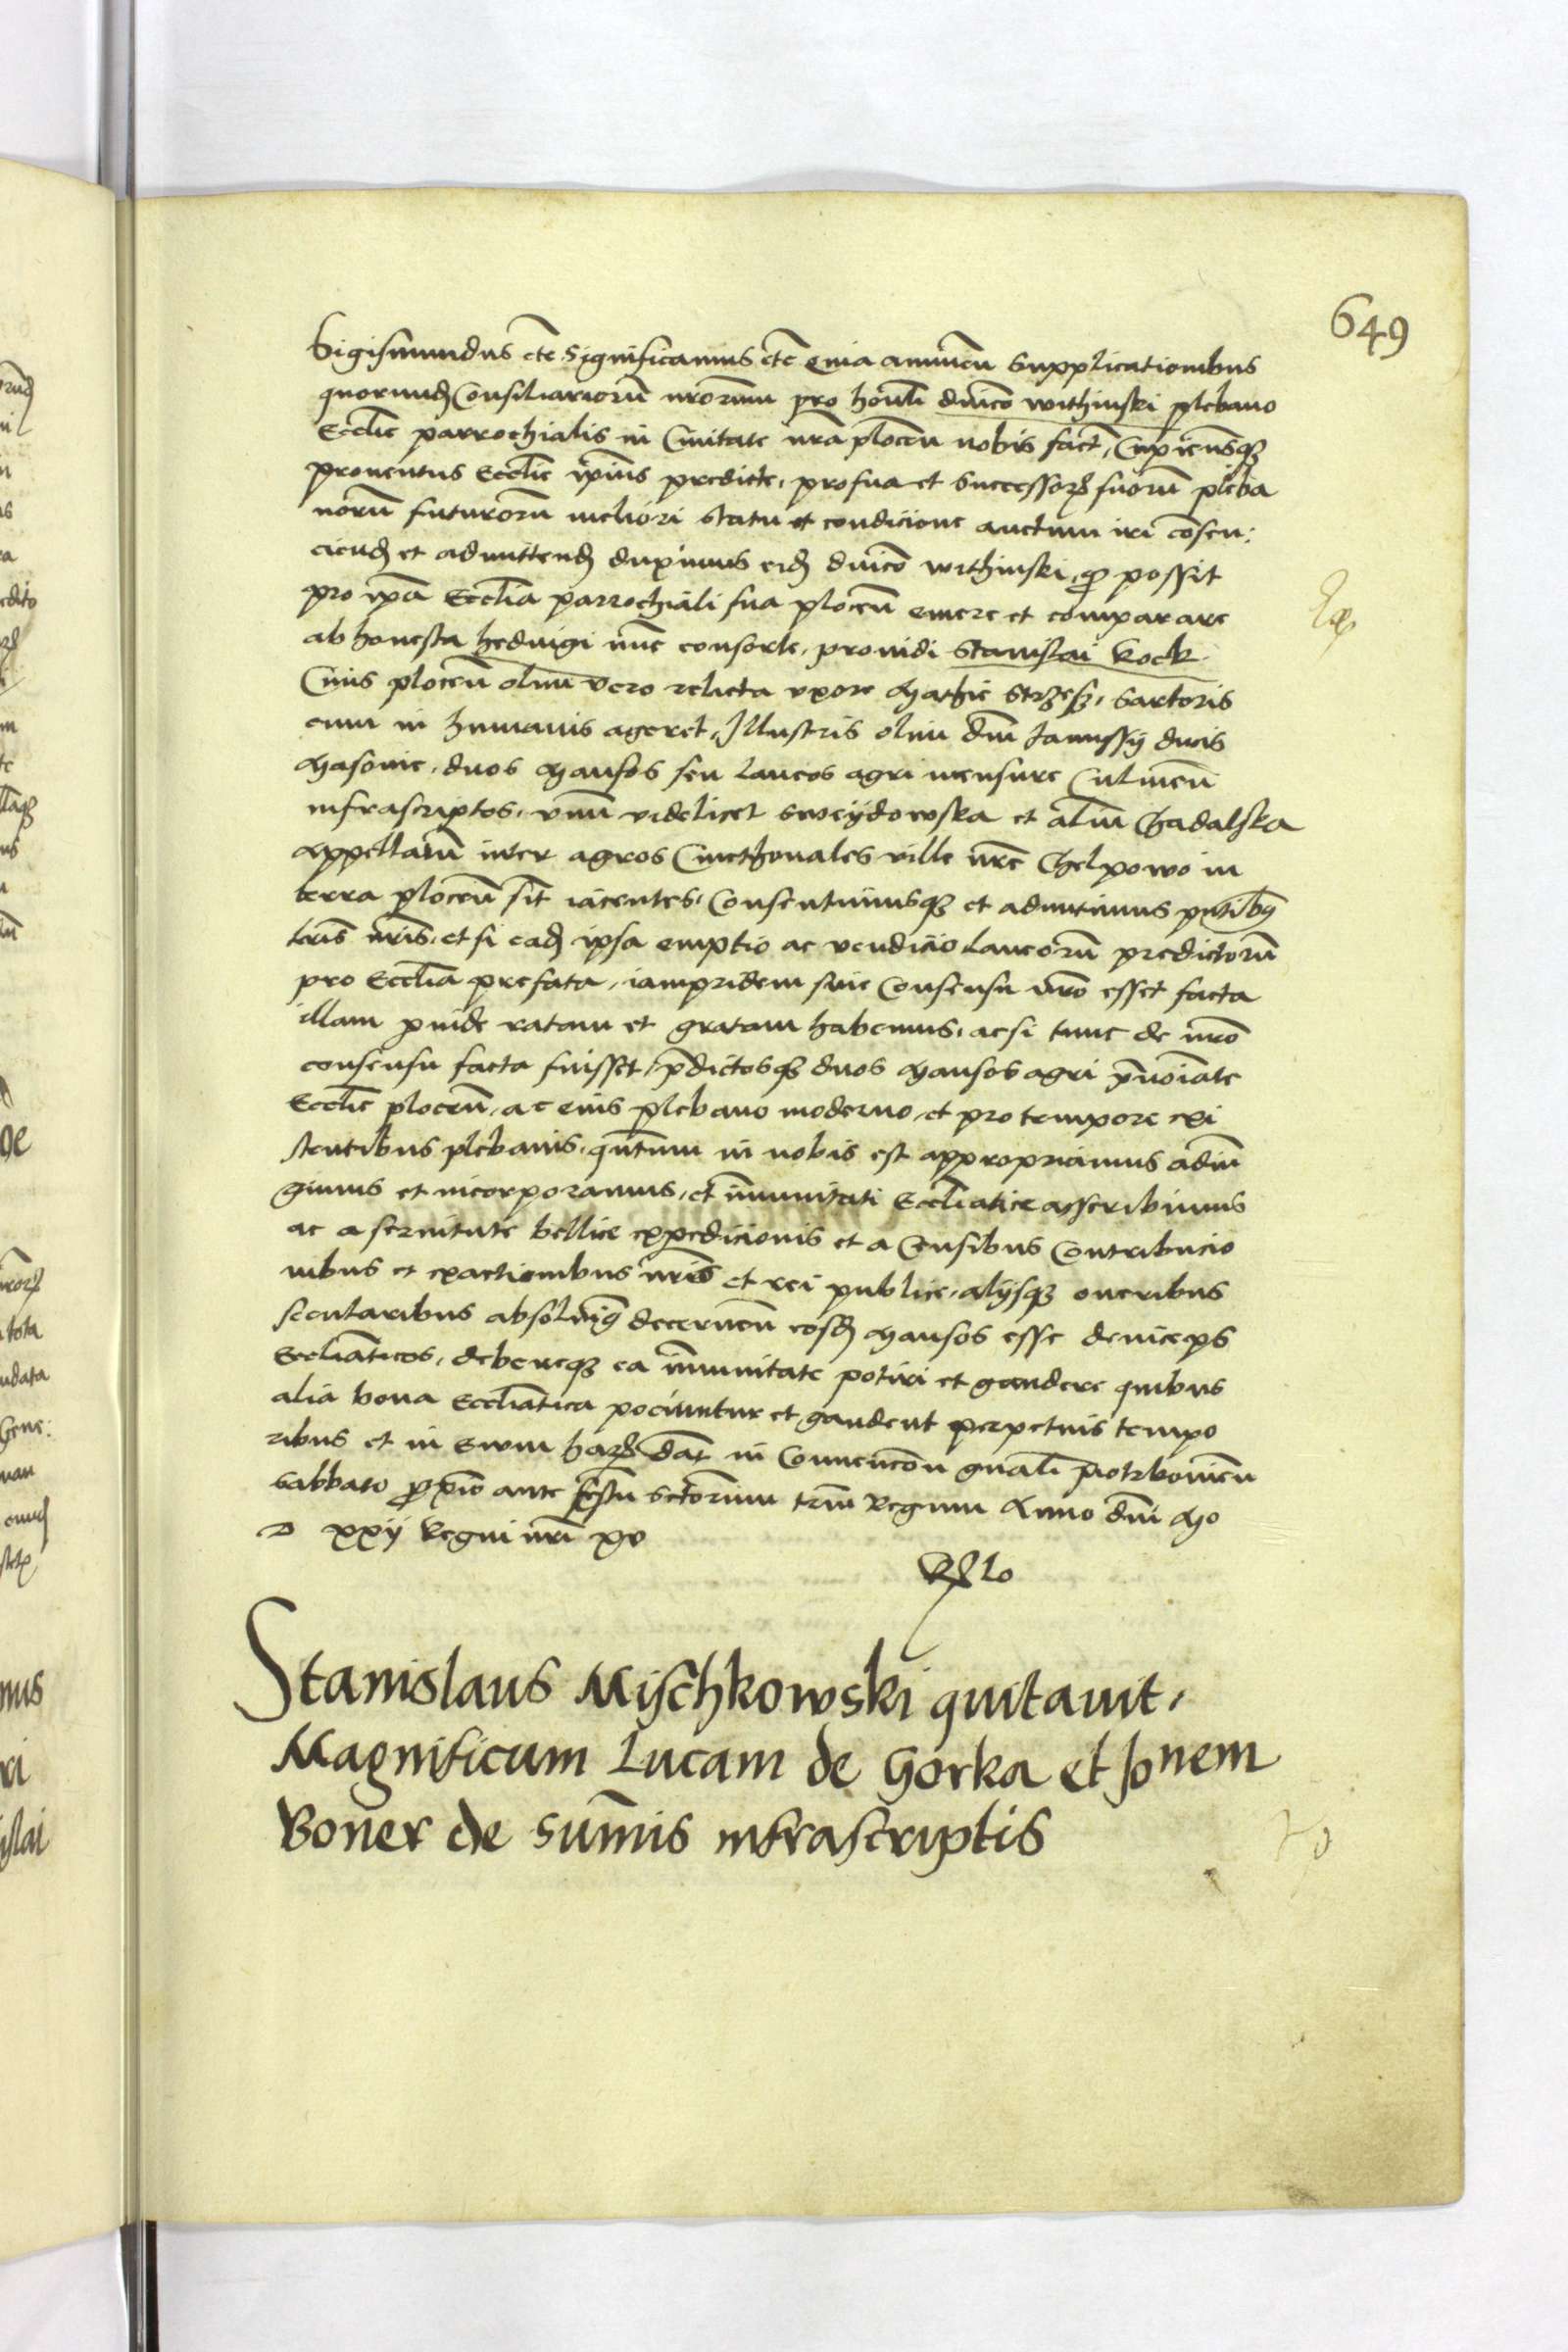 649
Sigismundus etc̄ Significamus etc̄ Quia annuen̄ Supplicationibus
quorund̄ Consiliariorū nrōrum pro honli dnico withinski plebano
Eccliē parrochialis in Civitate nrā plocen̄ nobis fact̄, Cupiensq̃
proventus Eccliē ip̄ius predicte, pro sua et Successor̄ suorū pleba
norū futurorū meliori statu et condicione auctum iri cōsen:
ciend̄ et admittend̄ duximus eid̄ dnico withinski, q̄ possit
pro ip̄a Eccliā parrochiali sua plocen̄ emere et comparare
ab honesta hedvigi nūc consorte, providi Stanislai Kock
Civis plocen̄ olim vero relicta uxore Mathie Strzesz, Sartoris
cum in humanis ageret, Illustris olim dnī Janussÿ ducis
Masovie, duos Mansos seu Laneos agri mensure Culmen̄
infrascriptos, unū videlicet Sweÿdowska et aliū Chadalska
Appellatū inter agros Cmethonales ville nrē Chelpowo in
terra plocen̄ sit̄ iacentes, Consentimusq̃ et admittimus pn̄tibq̃
lrīs nrīs, et si ead̄ ipsa emptio ac vendicio Laneorū predictorū
pro Eccliā prefata, iampridem sine Consensu nrō esset facta
illam proinde ratam et gratam habemus, acsi tunc de nrō
consensu facta fuisset, p̄dictosq̃ duos Mansos agri p̄noīate
Eccliē plocen̄, ac eius plebano moderno, et pro tempore exi
stentibus plebanis, qn̄tum in nobis est appropriamus adiū
gimus et incorporamus, et īmunitati Eccliātice asscribimus
ac a servitute bellice expedicionis et a Censibus Contribucio
nibus et exactionibus nrīs et rei publice, alÿsq̃ oneribus
secularibus absolvim̄q̃ decernen̄ eosd̄ Mansos esse deinceps
Eccliāticos, debereq̃ ea īmunitate potiri et gaudere quibus
alia bona Eccliātica pociuntur et gaudent perpetuis tempo
ribus et in evum har̄ Dat̄ in Convencōn gnālī piotrkovien̄
Sabbato p̄xīo ante festū Sctōrum triū Regum Anno dnī Mo
D xxij Regni nrī xvo
Stanislaus Mijschkowski quitavit,
Magnificum Lucam de Gorka et Jonem
Boner de sum̄is infrascriptis